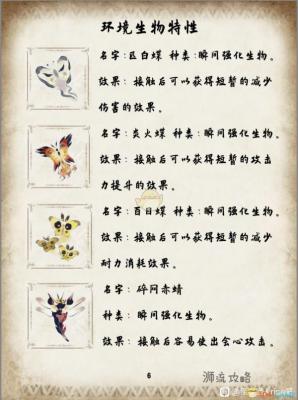 环境生物特性
名字:区白蝶 种类:瞬间强化生物。
效果:接触后可以获得短暂的减少
伤害的效果。
名字:炎火蝶 种类:瞬间强化生物。
效果:接触后可以获得短暂的攻击
力提斗的效果。
名字:百日蝶 种类:瞬间强化生物。
效果:接触后可以获得短暂的减少
耐力消耗效果。
名字:碎冈赤蜻
种类:瞬间强化生物。
效果:接触后容易使出会心攻击。
6
狮流攻略